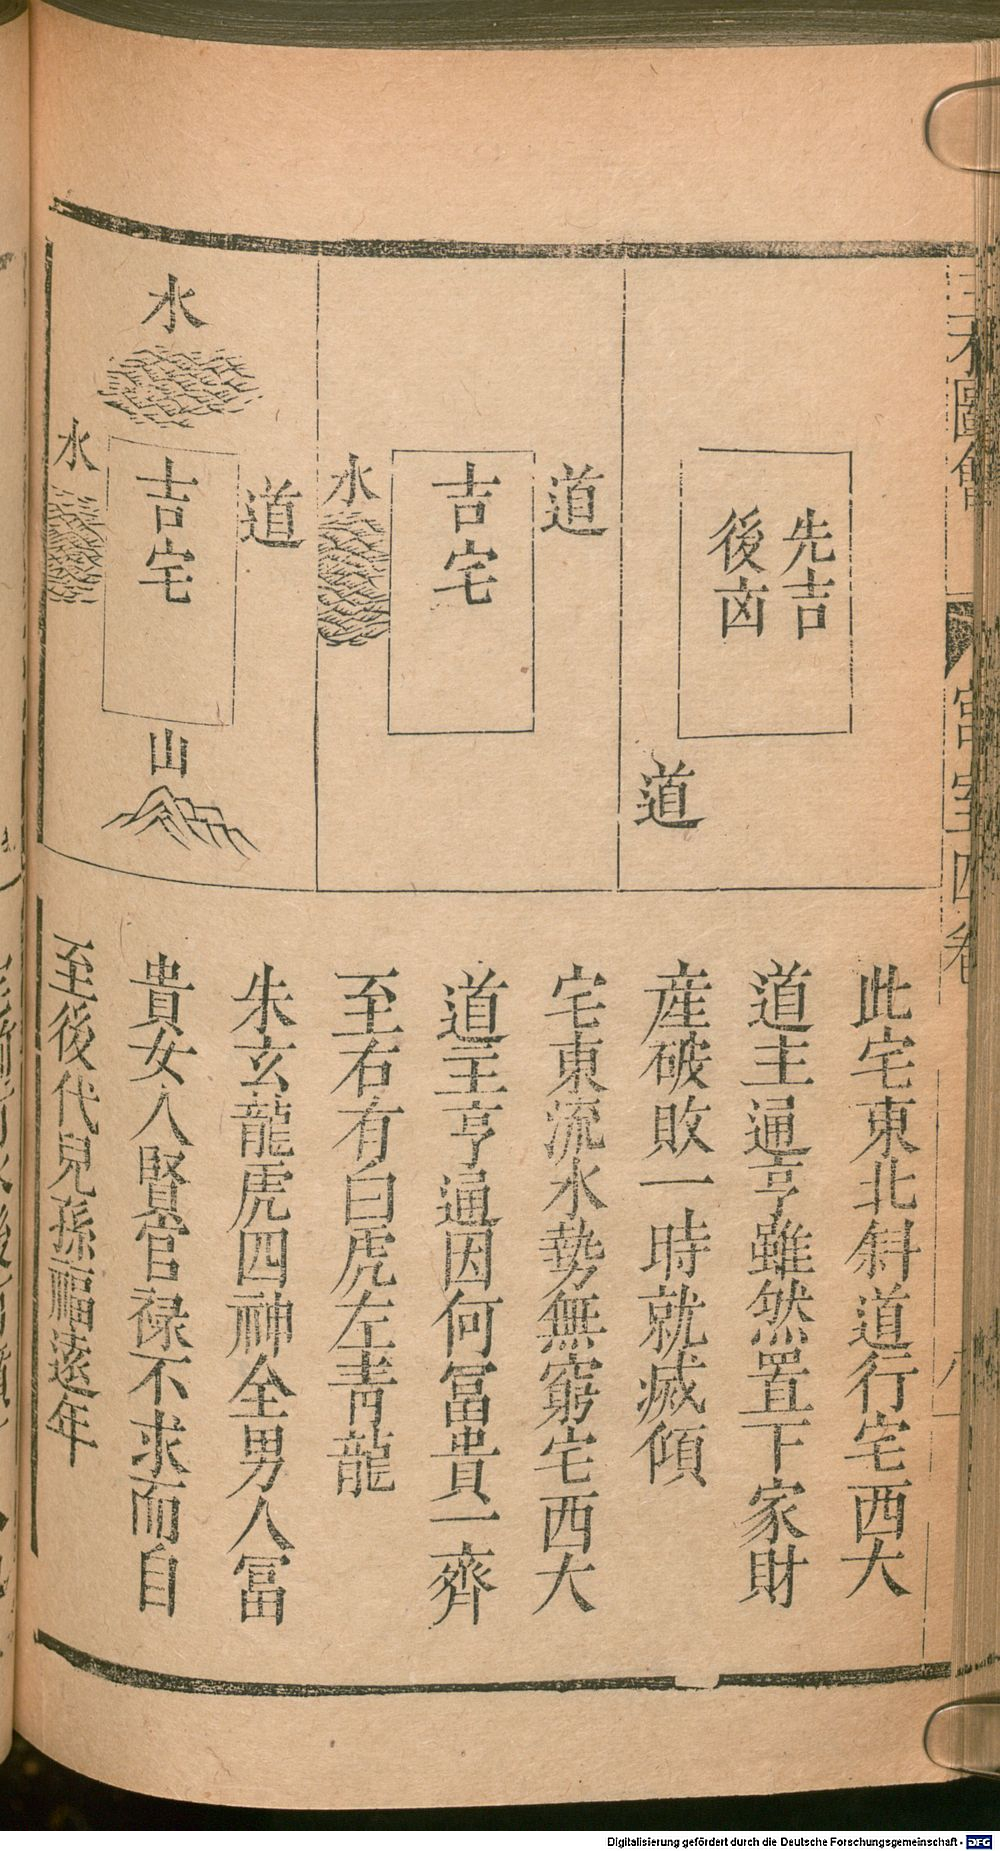 三才圖會
宮室四卷
先吉
後㐫
道
道
吉宅
水
道
吉宅
水
水
山
此宅東北斜道行宅西大
道主通亨雖然置下家財
産破敗一時就㓕傾
宅東流水勢無窮宅西大
道主亨通因何冨貴一齊
至右有白虎左青龍
朱玄龍虎四神全男人冨
貴女人賢官禄不求而自
至後代兒孫福遠年
Digitalisierung gefördert durch die Deutsche Forschungsgemeinschaft - DFG